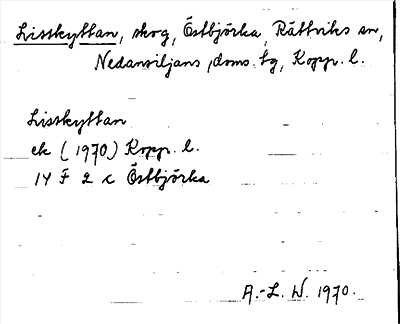 Lisskyttan, skog, Östbjörka, Rättviks sn,
Nedansiljans doms. tg, Kopp. l.
Lisskyttan
ek (1970) Kopp. l.
14 F 2 c Östbjörka
A.-L. W. 1970.